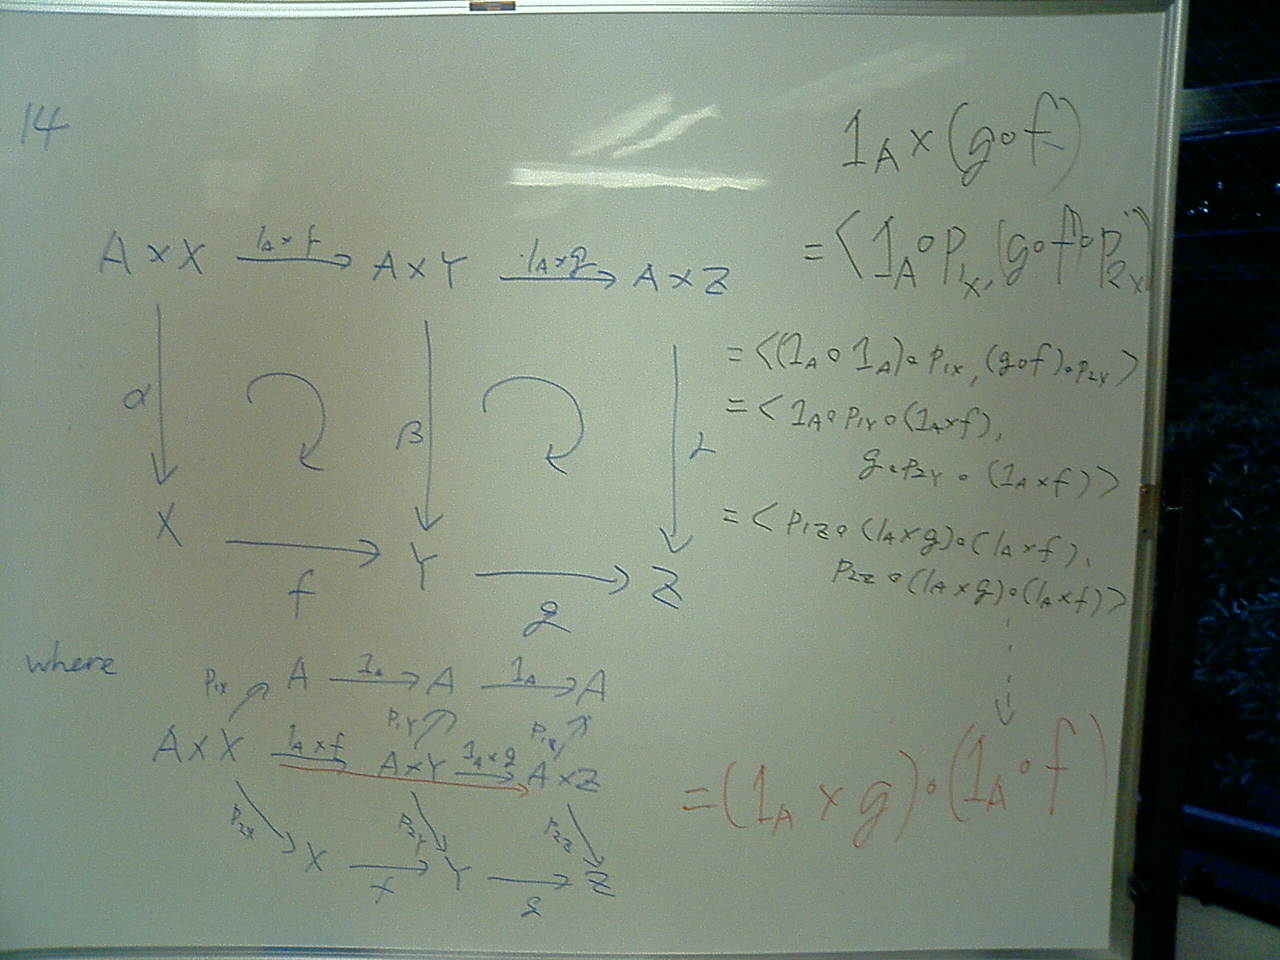 14
A×X 1A×f A×Y 1A×g A×Z
α β
X f Y g Z
where
A 1A A 1A A
P1X P1Y P1Z
A×X 1A×f A×Y 1A×g A×Z
P2X P2Y P2Z
X f Y g Z
1A×(g∘f)
=<1A∘P1X,(g∘f)∘P2X>
=<(1A∘1A)∘P1X,(g∘f)∘P2X>
=<1A∘P1Y∘(1A×f),
g∘P2Y∘(1A×f)>
=<P1Z∘(1A×g)∘(1A×f),
P2Z∘(1A×g)∘(1A×f)>
=(1A×g)∘(1A∘f)